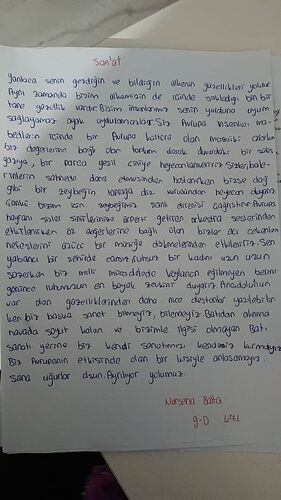 San'at
Yalnızca senin gezdiğin ve bildiğin ülkenin güzellikleri yoktur.
Aynı zamanda bizim ülkemizin de içinde sakladığı bin bir
tane güzellik vardır. Bizim insanlarımız senin yurduna uyum
sağlayamaz ayak uyduramazlar. Siz Avrupa insanları ma-
bedlerin içinde bir Avrupa kültürü olan mozaiği ararken
biz değerlerine bağlı olan toplum olarak duvardaki bir sülüs
yazıya, bir parça yeşil çiniye heyecanlanıyoruz. Sizler, bale-
rinlerin sahnede dans etmesinden hoşlanırken bizse dağ
gibi bir zeybeğin toprağa diz vuruşundan heyecan duyarız.
Çünkü bizim için zeybeğimiz şanlı direnişi çağrıştırır. Avrupa
hayranı sizler sinirlerinize ürperti getiren orkestra seslerinden
etkilenirken öz değerlerine bağlı olan bizler acı çekenlerin
nefeslerini sızısız bir müziğe dökmelerinden etkileniriz. Sen
yabancı bir şehirde cansız, ruhsuz bir kadını uzun uzun
süzerken biz milli mücadelede kağnıların eğilmeyen belini
görünce ruhumuzun en büyük zevkini duyarız. Anadolu'nun
var olan güzelliklerinden daha nice destanlar yazılabilir-
ken biz başka sanat bilmeyiz, bilemeyiz. Batıdan alınma
havada soyut kalan ve bizimle ilgisi olmayan Batı
sanatı yerine biz kendi sanatımızı kendimiz kurmalıyız.
Biz Avrupanın etkisinde olan bir kişiyle anlaşamayız.
Sana uğurlar olsun. Ayrılıyor yolumuz.
Nursena Balta
9-D 471